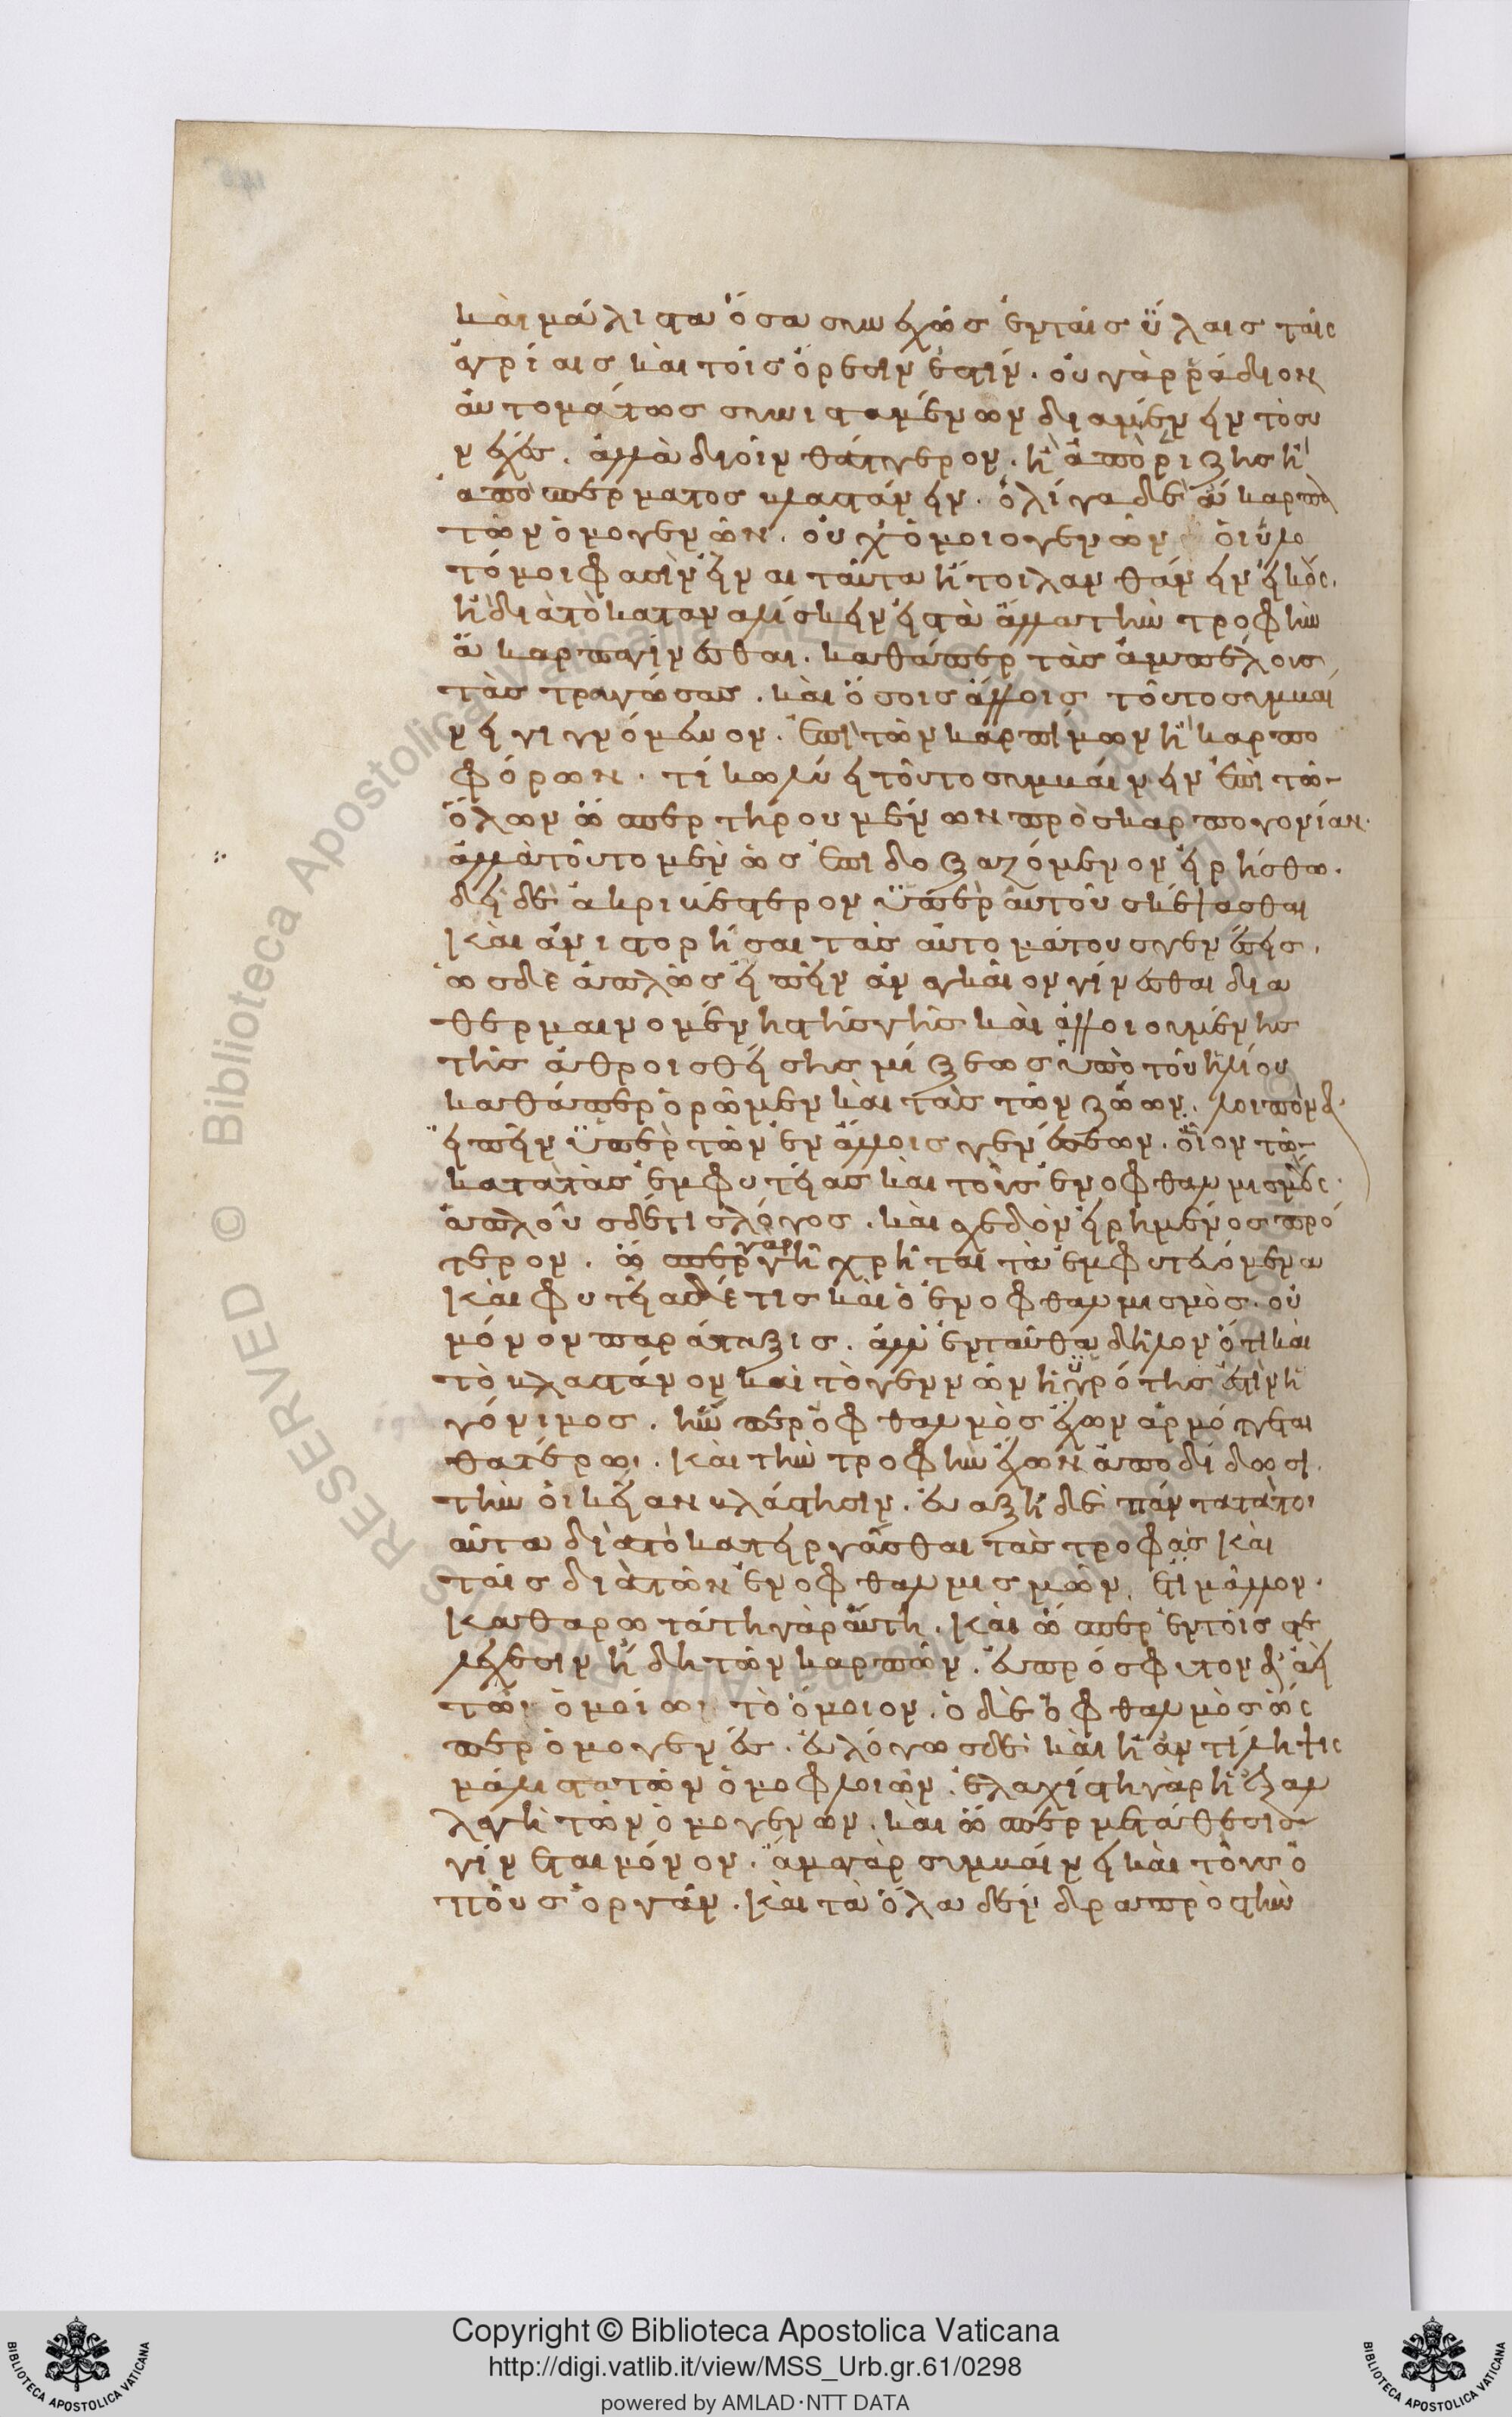 καὶ μάλιστα ὅσα συνεχῶς ἐν ταῖς ὕλαις ταῖς
ἀγρίαις καὶ τοῖς ὄρεσίν ἐστιν. οὐ γὰρ ῥάδιον
αὐτομάτως συνισταμένων διαμένειν τὸ συ
νεχές. ἀλλὰ δυοῖν θάτερον. ἢ ἀπὸ ῥίζης ἢ
ἀπὸ σπέρματος βλαστάνειν. ὀλίγα δὲ ἄκαρπα
τῶν ὁμογενῶν. οὐχ ὁμοιογενῶν οἱ ὑλο
τόμοι φασὶν εἶναι ταῦτα ἤτοι λανθάνειν εἰκός.
ἢ διὰ τὸ καταναλίσκειν εἰς τὰ ἄλλα τὴν τροφὴν
ἄκαρπα γίνεσθαι. καθάπερ τὰς ἀμπέλους
τὰς τραγώσας. καὶ ὅσοις ἄλλοις τοῦτο συμβαί
νει γινόμενον. ἐπὶ τῶν καρπίμων ἢ καρπο
φόρων. τί κωλύει τοῦτο συμβαίνειν ἐπὶ τῶν
ὅλων ὥσπερ τηρουμένων πρὸς καρπογονίαν.
ἀλλὰ τοῦτο μὲν ὡς ἐπιδοξαζόμενον εἰρήσθω.
δεῖ δὲ ἀκριβέστερον ὑπὲρ αὐτοῦ σκέψασθαι
καὶ ἀνιστορῆσαι τὰς αὐτομάτους γενέσεις.
ὡς δὲ ἁπλῶς εἰπεῖν ἀναγκαῖον γίνεσθαι δια
θερμαινομένης τῆς γῆς καὶ ἀλλοιουμένης
τῆς ἀθροισθείσης μίξεως ὑπὸ τοῦ ἡλίου
καθάπερ ὁρῶμεν καὶ τὰς τῶν ζώων. λοιπὸν δ'
εἰπεῖν ὑπὲρ τῶν ἐν ἄλλοις γενέσεων. οἷον τῶν
κατὰ τὰς ἐμφυτείας καὶ τοὺς ἐνοφθαλμισμούς.
ἁπλοῦς δέ τις λόγος. καὶ σχεδὸν εἰρημένος πρό
τερον. ὥσπερ γὰρ γῆ χρῆται τὰ ἐμφυτευόμενα
καὶ φυτεία δέ τις καὶ ὁ ἐνοφθαλμισμὸς. οὐ
μόνον παράταξις. ἀλλ' ἐνταῦθα δῆλον ὅτι καὶ
τὸ βλαστάνον καὶ τὸ γεννῶν ἡ ὑγρότης ἐστὶν ἡ
γόνιμος. ἣν περ ὀφθαλμὸς ἔχων ἁρμόττεται
θατέρῳ. καὶ τὴν τροφὴν ἔχων ἀποδίδωσι
τὴν οἰκείαν βλάστησιν. εὐαξῆ δὲ πάντα τὰ τοι
αῦτα διὰ τὸ κατειργάσθαι τὰς τροφὰς καὶ
ταῖς διὰ τῶν ἐνοφθαλμισμῶν, ἔτι μᾶλλον.
καθαρωτάτη γὰρ αὕτη. καὶ ὥσπερ ἐν τοῖς στε
λέχεσιν ἤδη τῶν καρπῶν. εὐπρόσφυτον δ' ἀεὶ
τῶι ὁμοίωι τὸ ὅμοιον. ὁ δὲ ὀφθαλμὸς ὥς
περ ὁμογενές. εὐλόγως δὲ καὶ ἡ ἀντίληψις
μάλιστα τῶν ὁμοφλοίων. ἐλαχίστη γὰρ ἡ ἐξαλ
λαγὴ τῶν ὁμογενῶν. καὶ ὥσπερ μετάθεσις
γίνεται μόνον. ἅμα γὰρ συμβαίνει καὶ τοὺς ὀ
ποὺς ὀργᾶν. καὶ τὰ ὅλα δένδρα πρὸς τὴν
Copyright © Biblioteca Apostolica Vaticana
http://digi.vatlib.it/view/MSS_Urb.gr.61/0298
powered by AMLAD·NTT DATA